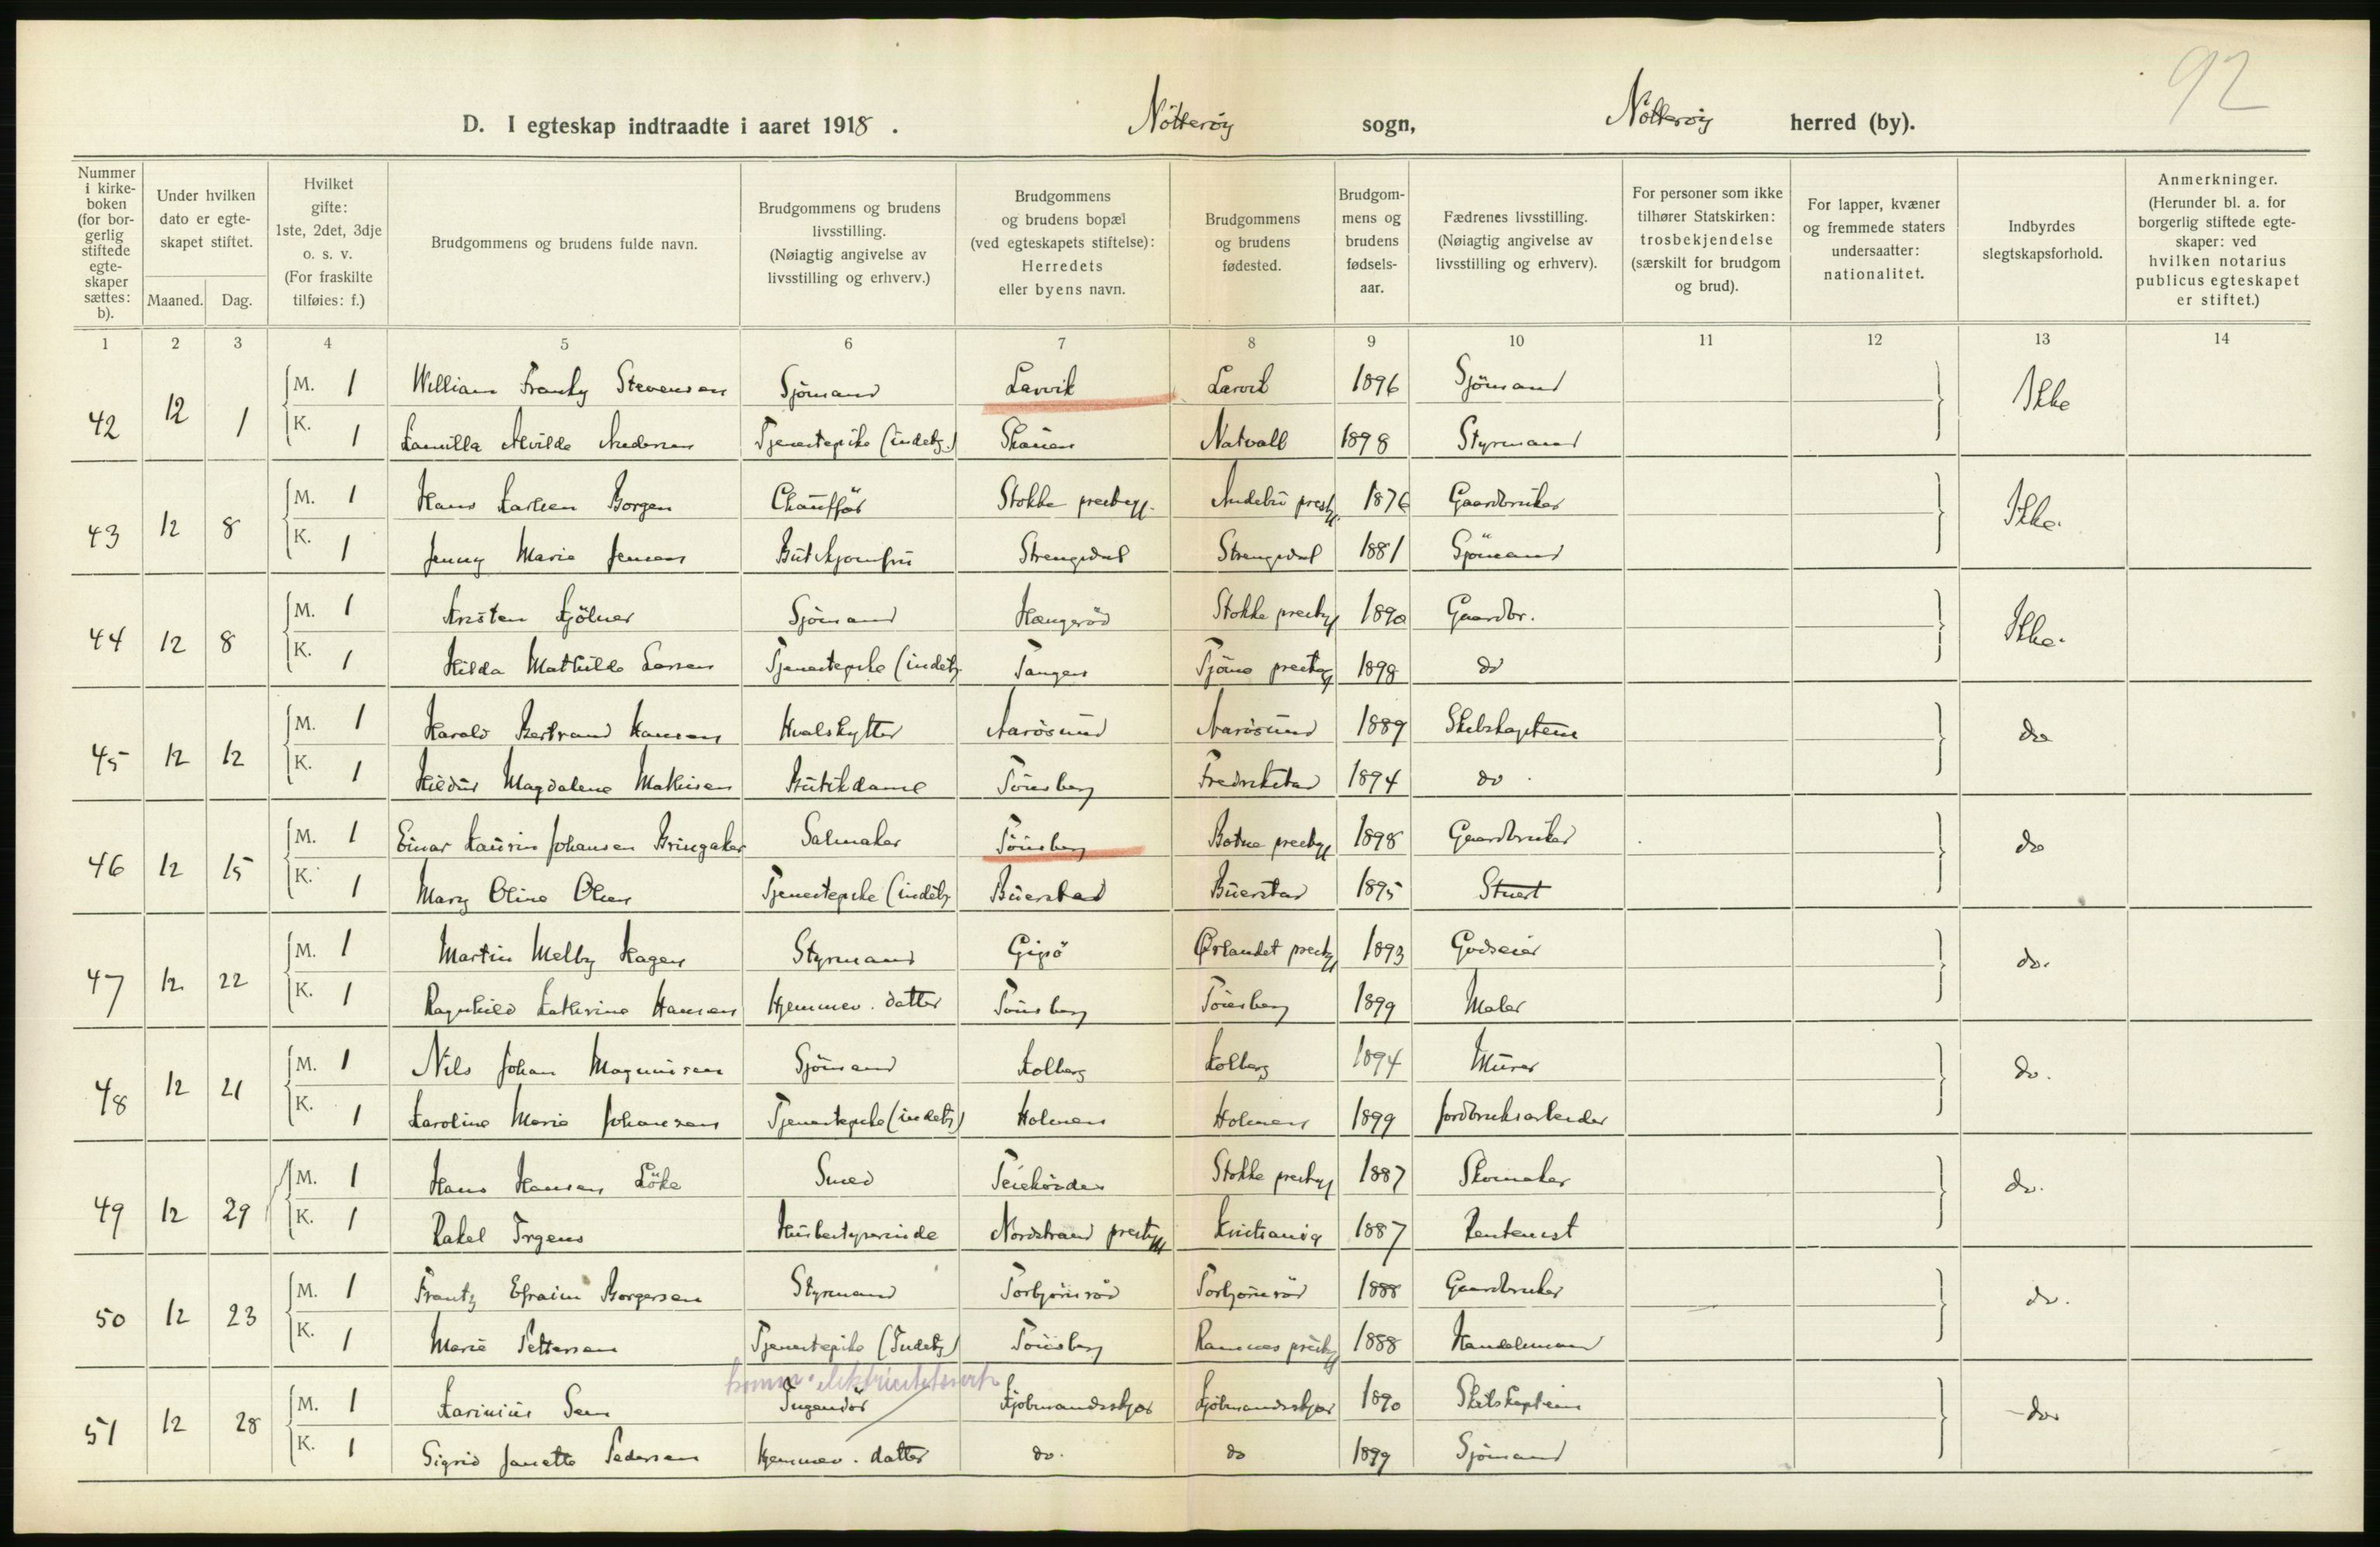 92
D. I egteskap indtraadte i aaret 1918. Nötterøy sogn, Nötterøy herred (by).
Nummer i kirkeboken (for borgerlig stiftede egteskaper sættes: b).
Under hvilken dato er egteskapet stiftet.
Maaned. Dag.
Hvilket gifte: 1ste, 2det, 3dje o. s. v. (For fraskilte tilføies: f.)
Brudgommens og brudens fulde navn.
Brudgommens og brudens livsstilling. (Nøiagtig angivelse av livsstilling og erhverv.)
Brudgommens og brudens bopæl (ved egteskapets stiftelse): Herredets eller byens navn.
Brudgommens og brudens fødested.
Brudgommens og brudens fødselsaar.
Fædrenes livsstilling. (Nøiagtig angivelse av livsstilling og erhverv).
For personer som ikke tilhører Statskirken: trosbekjendelse (særskilt for brudgom og brud).
For lapper, kvæner og fremmede staters undersaatter: nationalitet.
Indbyrdes slegtskapsforhold.
Anmerkninger. (Herunder bl. a. for borgerlig stiftede egteskaper: ved hvilken notarius publicus egteskapet er stiftet.)
1 2 3 4 5 6 7 8 9 10 11 12 13 14
42 12 1 M. 1 William Franky Stevensen Sjömand Larvik Larvik 1896 Sjömand Ikke
K. 1 Kamilla Alvilde Andersen Tjenestepike (indetj.) Skauen Natvall 1898 Styrmand
43 12 8 M. 1 Hans Karlsen Borgen Chaufför Stokke prestegj. Andebu prestgj. 1876 Gaardbruker Ikke.
K. 1 Jenny Marie Jensen Butikjomfru Strengsdal Strengsdal 1881 Sjömand
44 12 8 M. 1 Kristen Kjölner Sjömand Hængeröd Stokke prestegj 1890 Gaardbr. Ikke.
K. 1 Hilda Mathilde Larsen Tjenestepike (indetj Tangen Tjömö prestegj 1898 do
45 12 12 M. 1 Harald Bertrand Hansen Hvalskytter Aarösund Aarösund 1889 Skibskaptein do
K. 1 Hildur Magdalene Mathisen Butikdame Tönsberg Fredrikstad 1894 do.
46 12 15 M. 1 Einar Laurin Johansen Bringaker Salmaker Tönsberg Botne prestegj 1898 Gaardbruker do
K. 1 Mary Oline Olsen Tjenestepike (indetj Buerstad Buerstad 1895 Stuert
47 12 22 M. 1 Martin Melby Hagen Styrmand Gipö Ørlandet prestgj 1893 Godseier do.
K. 1 Ragnhild Kathrine Hansen Hjemmev. datter Tönsberg Tönsberg 1899 Maler
48 12 21 M. 1 Nils Johan Magnussen Sjömand Kolberg Kolberg 1894 Murer do.
K. 1 Karoline Marie Johansen Tjenestepike (indetj) Holmen Holmen 1899 Jordbruksarbeider
49 12 29 M. 1 Hans Hansen Löke Smed Teiehöiden Stokke prestegj 1887 Skomaker do.
K. 1 Rakel Irgens Husbestyrerinde Nordstrand prestegj Kristiania 1887 Rentenist
50 12 23 M. 1 Frantz Efraim Borgersen Styrmand Torbjörnröd Torbjörnröd 1888 Gaardbruker do.
K. 1 Marie Pettersen Tjenestepike (Indetj) Tönsberg Ramnes prestgj 1888 Handelsmand
komm. elektricitetsverk
51 12 28 M. 1 Karinius Sem Ingeniör Kjöbmandskjær Kjöbmandskjær 1890 Skibskaptein do
K. 1 Sigrid Janette Pedersen Hjemmev. datter do. do 1899 Sjömand